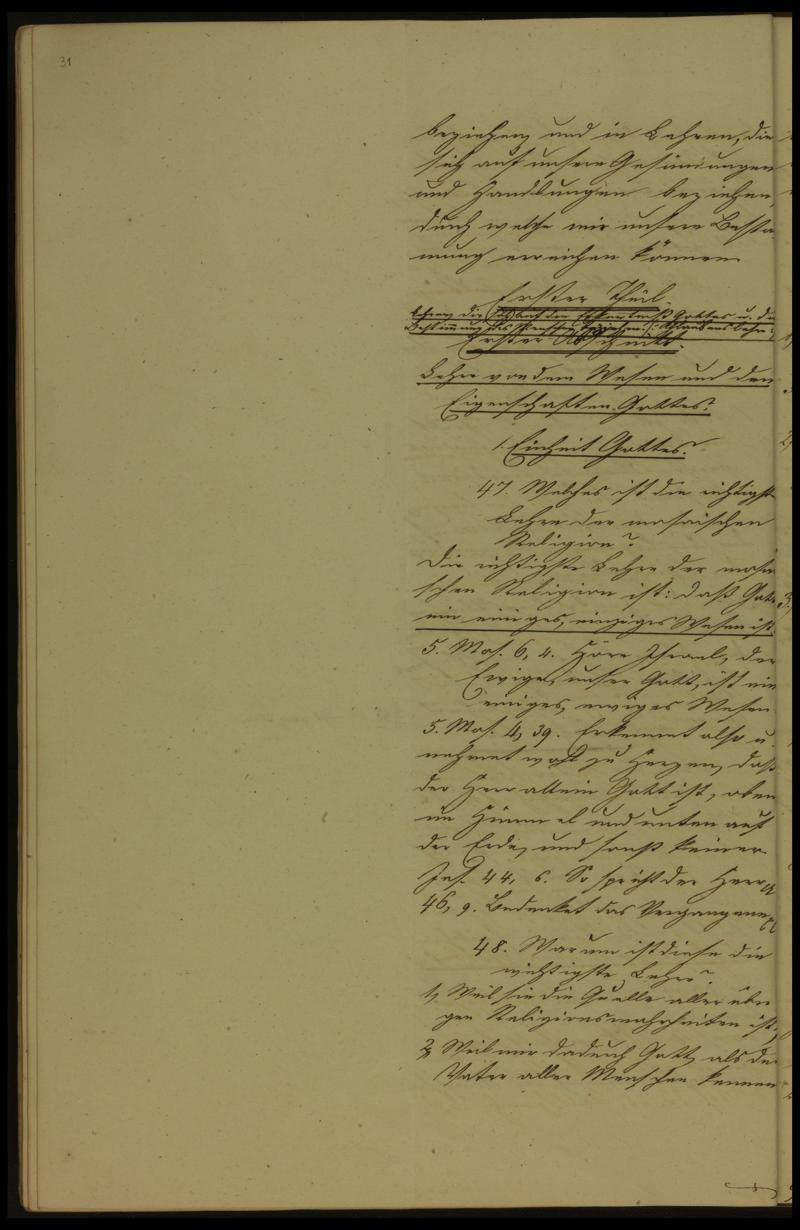 31
beziehen, und in Lehren, die
sich auf unsere Gesinnungen
und Handlungen beziehen,
durch welche wir unsere Bestim
mung erreichen können.
Erster Theil.
Lehren, die sich auf die Erkentniß Gottes u. die
Bestimmung des Menschen beziehen. /: Glaubenslehre :/
Erster Abschnitt.
Lehre von dem Wesen und den
Eigenschaften Gottes.
1. Einheit Gottes.
47. Welches ist die wichtigste
Lehre der mosaischen
Religion?
Die wichtigste Lehre der mosai
schen Religion ist: daß Gott
ein einiges, einziges Wesen ist.
5. Mos. 6, 4. Höre Israel, der
Ewige, unser Gott, ist ein
einiges, ewiges Wesen.
5. Mos. 4, 39. Erkennet also u.
nehmet wohl zu Herzen, daß
der Herr allein Gott ist, oben
im Himmel und unten auf
der Erde, und sonst keiner.
Jes. 44, 6. So spricht der Herr
46, 9. Bedenket das Vergangene
48. Warum ist diese die
wichtigste Lehre?
1, Weil sie die Quelle aller übri
gen Religionswahrheiten ist,
2, Weil wir dadurch Gott als den
Vater aller Menschen kennen